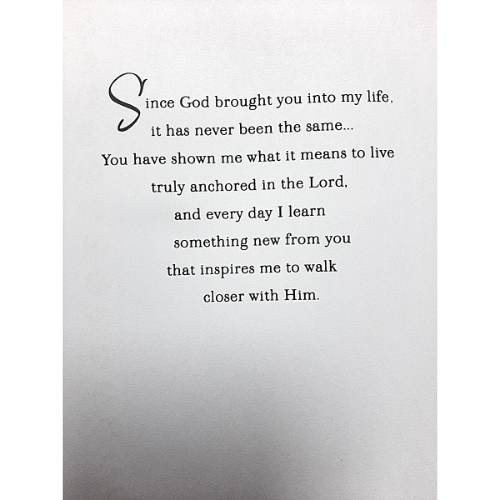 Since God brought you into my life,
it has never been the same...
You have shown me what it means to live
truly anchored in the Lord,
and every day I learn
something new from you
that inspires me to walk
closer with Him.